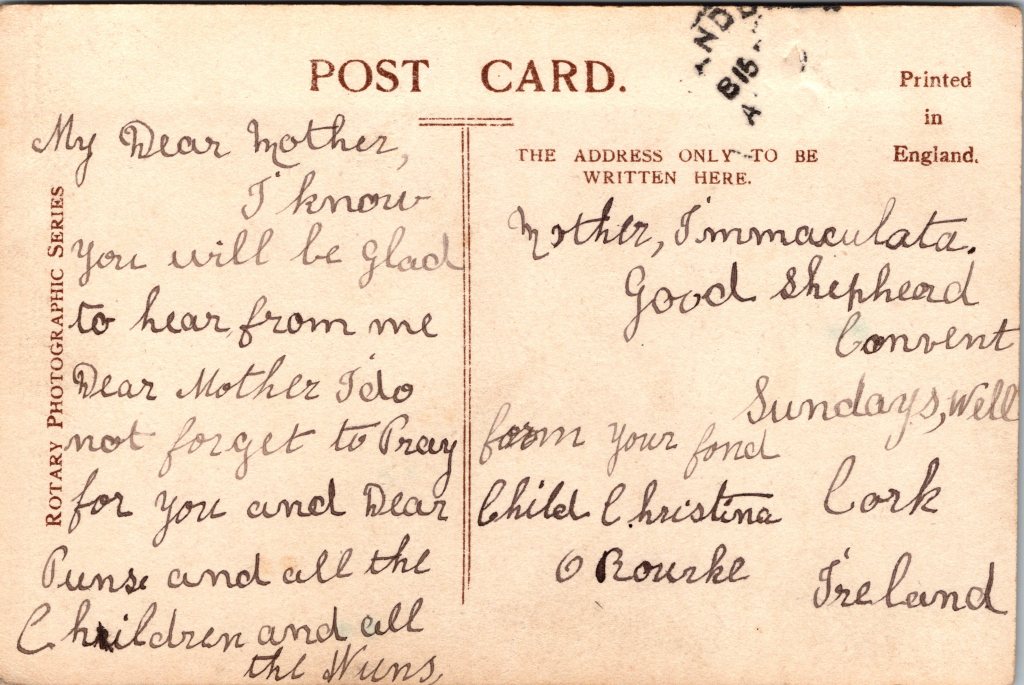 POST CARD.
Printed
in
England.
THE ADDRESS ONLY TO BE
WRITTEN HERE.
ROTARY PHOTOGRAPHIC SERIES
B15
My Dear Mother,
I know
you will be glad
to hear from me
Dear Mother I do
not forget to Pray
for you and Dear
and all the
Children and all
the Nuns,
form your fond
Child Christina
O Rourke
Mother, Immaculata.
Good Shepherd
Convent
Sundays, Well
Cork
Ireland